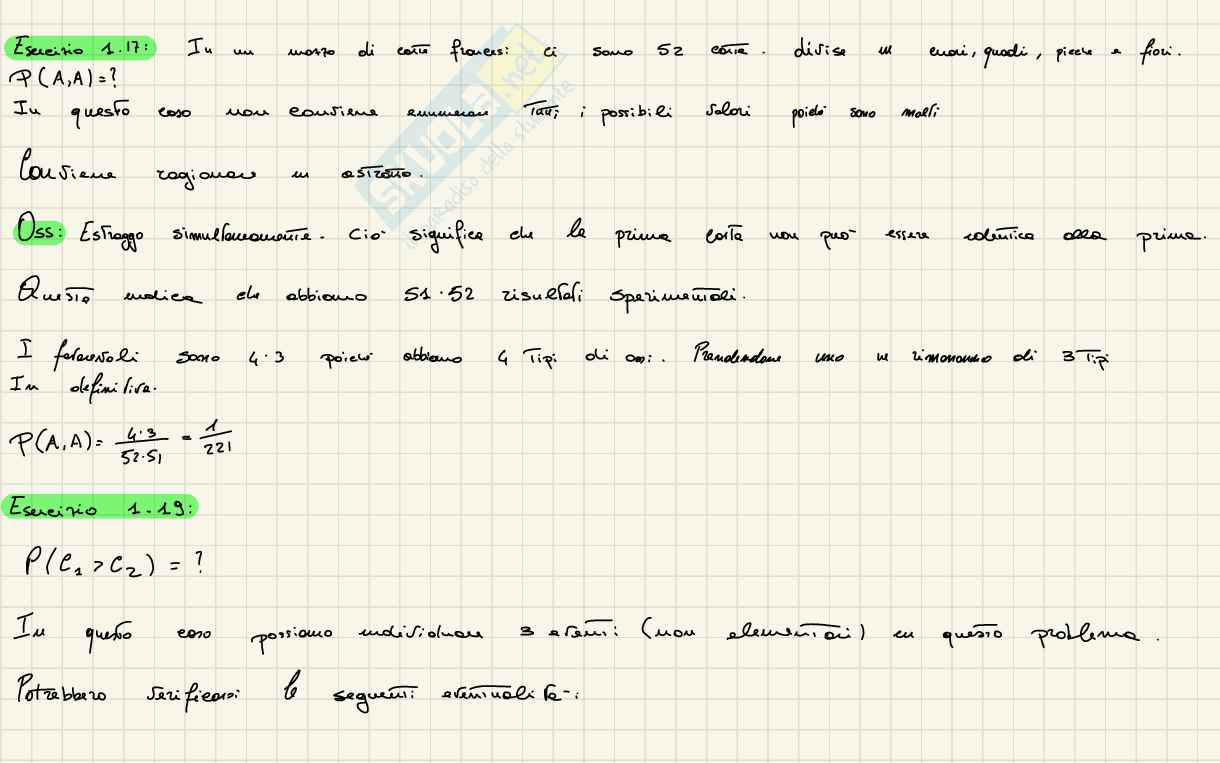 Esercizio 1.17: In un mazzo di carte francesi ci sono 52 carte. divise in cuori, quadri, picche e fiori.
P(A,A)=?
In questo caso non conviene enumerare tutti i possibili valori poiché sono molti
Conviene ragionare in astratto.
Oss: Estraggo simultaneamente. Ciò significa che la prima carta non può essere identica alla prima.
Questo indica che abbiamo 51·52 risultati sperimentali.
I favorevoli sono 4·3 poiché abbiamo 4 tipi di assi. Prendendone uno ne rimangono di 3 tipi
In definitiva.
P(A,A)= 4·3 / 52·51 = 1 / 221
Esercizio 1.19:
P(C₁>C₂) = ?
In questo caso possiamo individuare 3 eventi (non elementari) in questo problema.
Potrebbero verificarsi le seguenti eventualità:
SKUOLA.net
il paradiso dello studente